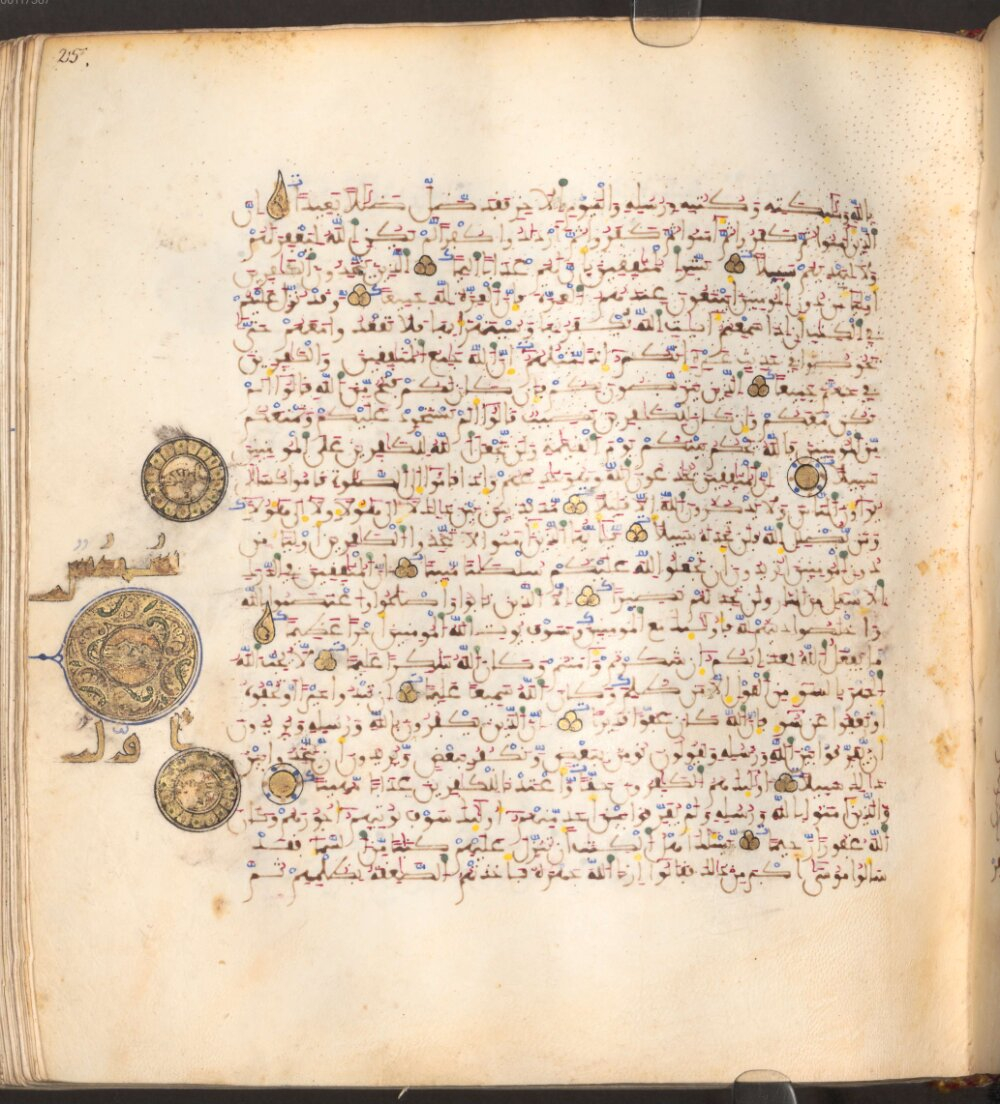 215.
بالله وملئكته وكتبه ورسله واليوم الاخر فقد ضل ضللا بعيدا ان
الذين امنوا ثم كفروا ثم امنوا ثم كفروا ثم ازدادوا كفرا لم يكن الله ليغفر لهم
ولا ليهديهم سبيلا بشر المنفقين بان لهم عذابا اليما الذين يتخذون الكفرين
اولياء من دون المومنين ايبتغون عندهم العزة فان العزة لله جميعا وقد نزل عليكم
في الكتب ان اذا سمعتم ايت الله يكفر بها ويستهزا بها فلا تقعدوا معهم حتى
يخوضوا في حديث غيره انكم اذا مثلهم ان الله جامع المنفقين والكفرين
في جهنم جميعا الذين يتربصون بكم فان كان لكم فتح من الله قالوا الم
نكن معكم وان كان للكفرين نصيب قالوا الم نستحوذ عليكم ونمنعكم
من المومنين فالله يحكم بينكم يوم القيمة ولن يجعل الله للكفرين على المومنين
سبيلا ان المنفقين يخدعون الله وهو خدعهم واذا قاموا الى الصلوة قاموا كسالى
يراءون الناس ولا يذكرون الله الا قليلا مذبذبين بين ذلك لا الى هؤلاء ولا الى هؤلاء
ومن يضلل الله فلن تجد له سبيلا يايها الذين امنوا لا تتخذوا الكفرين اولياء من
دون المومنين اتريدون ان تجعلوا لله عليكم سلطنا مبينا ان المنفقين في الدرك
الاسفل من النار ولن تجد لهم نصيرا الا الذين تابوا واصلحوا واعتصموا بالله
واخلصوا دينهم لله فاوليك مع المومنين وسوف يوت الله المومنين اجرا عظيما
ما يفعل الله بعذابكم ان شكرتم وامنتم وكان الله شكرا عليما لا يحب الله
الجهر بالسوء من القول الا من ظلم وكان الله سميعا عليما ان تبدوا خيرا او تخفوه
او تعفوا عن سوء فان الله كان عفوا قديرا ان الذين يكفرون بالله ورسله ويريدون
ان يفرقوا بين الله ورسله ويقولون نومن ببعض ونكفر ببعض ويريدون ان يتخذوا بين
ذلك سبيلا اوليك هم الكفرون حقا واعتدنا للكفرين عذابا مهينا
والذين امنوا بالله ورسله ولم يفرقوا بين احد منهم اوليك سوف نوتيهم اجورهم وكان
الله غفورا رحيما يسلك اهل الكتب ان تنزل عليهم كتبا من السماء فقد
سالوا موسى اكبر من ذلك فقالوا ارنا الله جهرة فاخذتهم الصعقة بظلمهم ثم